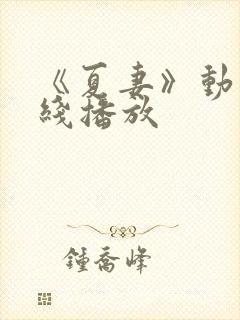 《夏妻》動
綫播放
鍾喬峰